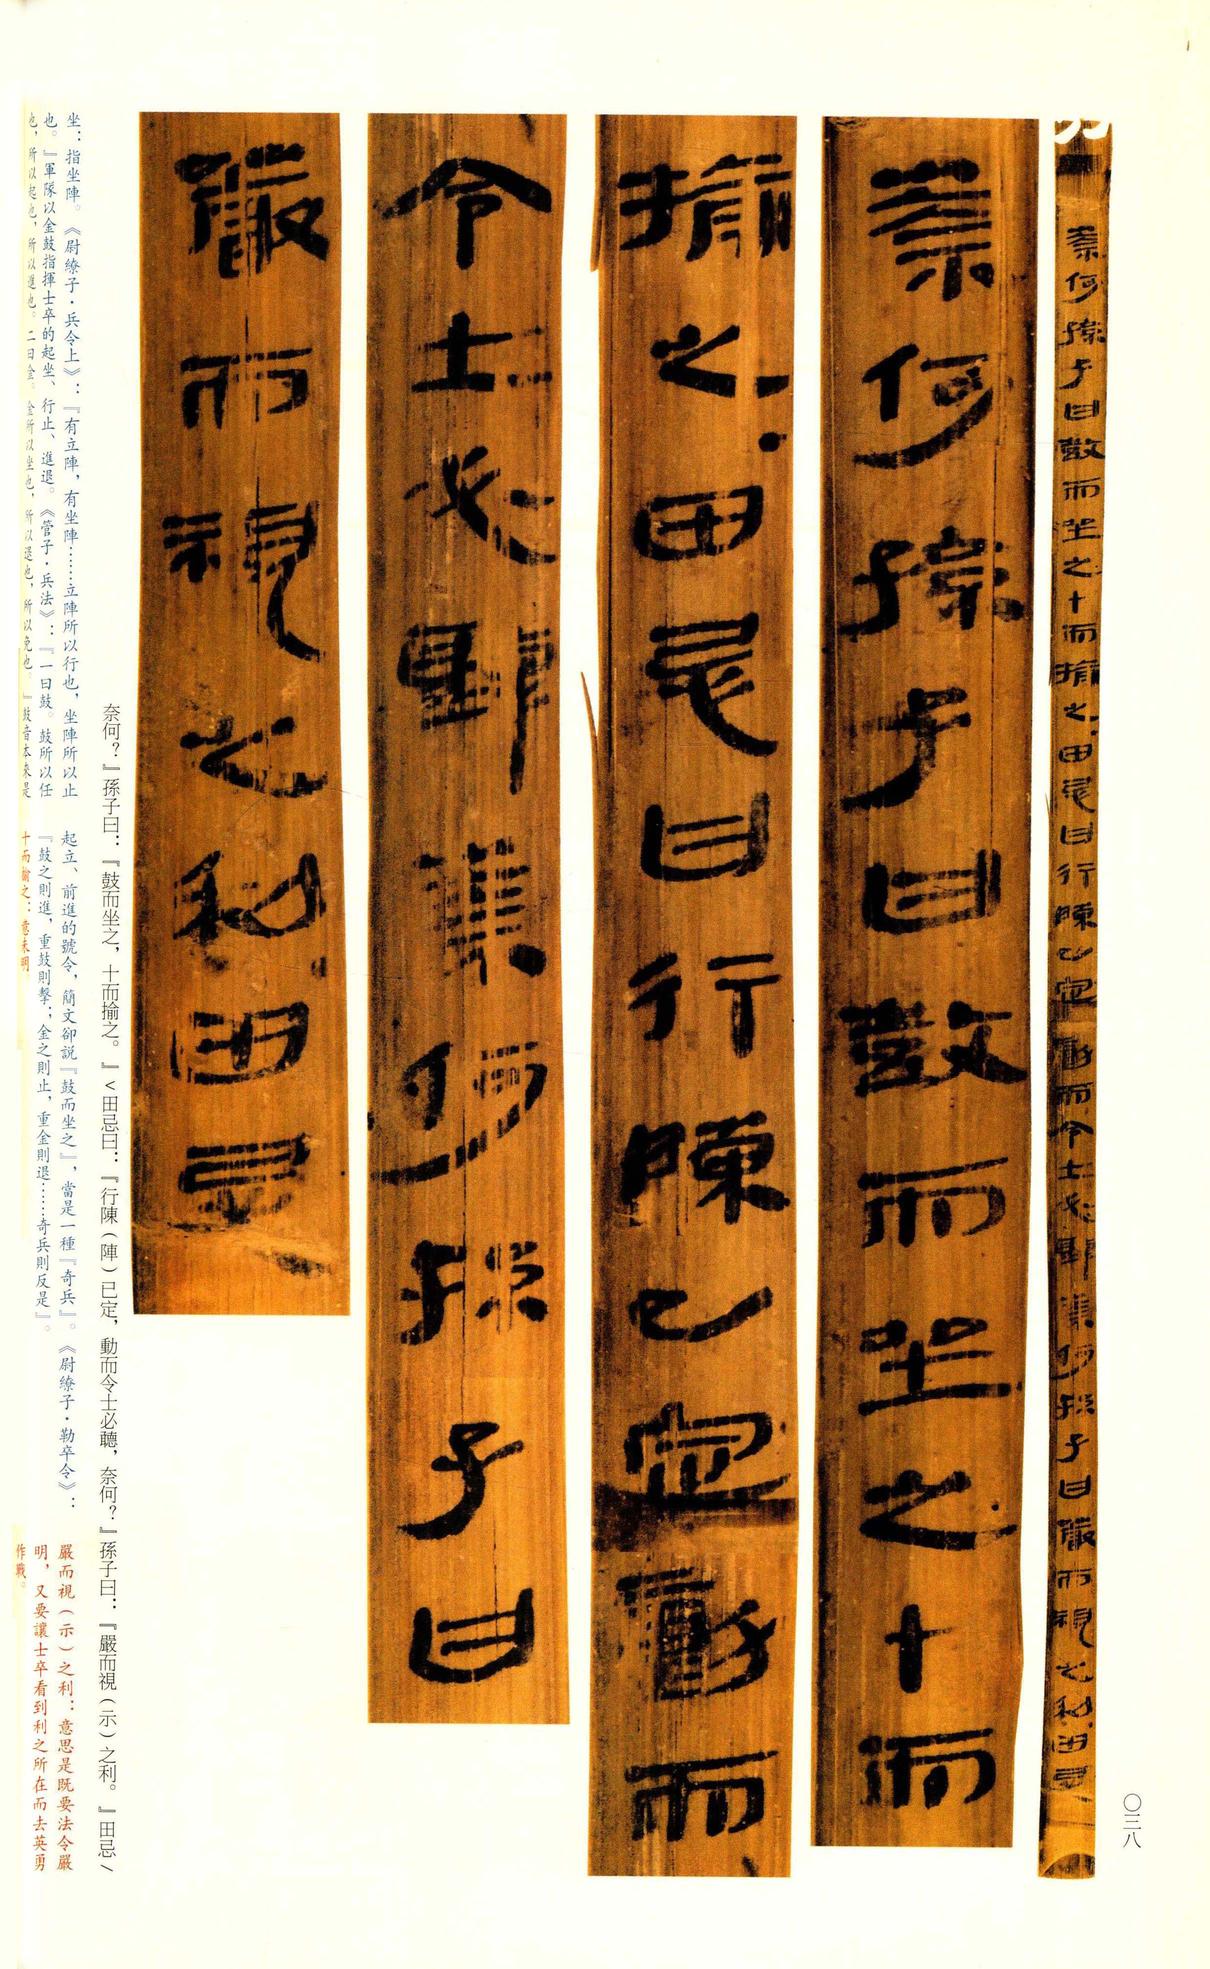 奈何孫子曰鼓而坐之十而揄之田忌曰行陳已定動而令士必聽奈何孫子曰嚴而視之利田忌
奈何孫子曰鼓而坐之十而
揄之田忌曰行陳已定動而
令士必聽奈何孫子曰
嚴而視之利田忌
〇三八
奈何？』孫子曰：『鼓而坐之，十而揄之。』<田忌曰：『行陳（陣）已定，動而令士必聽，奈何？』孫子曰：『嚴而視（示）之利。』田忌/
坐：指坐陣。《尉繚子·兵令上》：『有立陣，有坐陣……立陣所以行也，坐陣所以止
也。』軍隊以金鼓指揮士卒的起坐、行止、進退。《管子·兵法》：『一曰鼓。鼓所以任
也，所以起也，所以進也。二曰金。金所以坐也，所以退也，所以免也。』鼓音本來是
起立、前進的號令，簡文卻説『鼓而坐之』，當是一種『奇兵』。《尉繚子·勒卒令》：
『鼓之則進，重鼓則擊；金之則止，重金則退……奇兵則反是』。
十而揄之：意未明
嚴而視（示）之利：意思是既要法令嚴
明，又要讓士卒看到利之所在而去英勇
作戰。